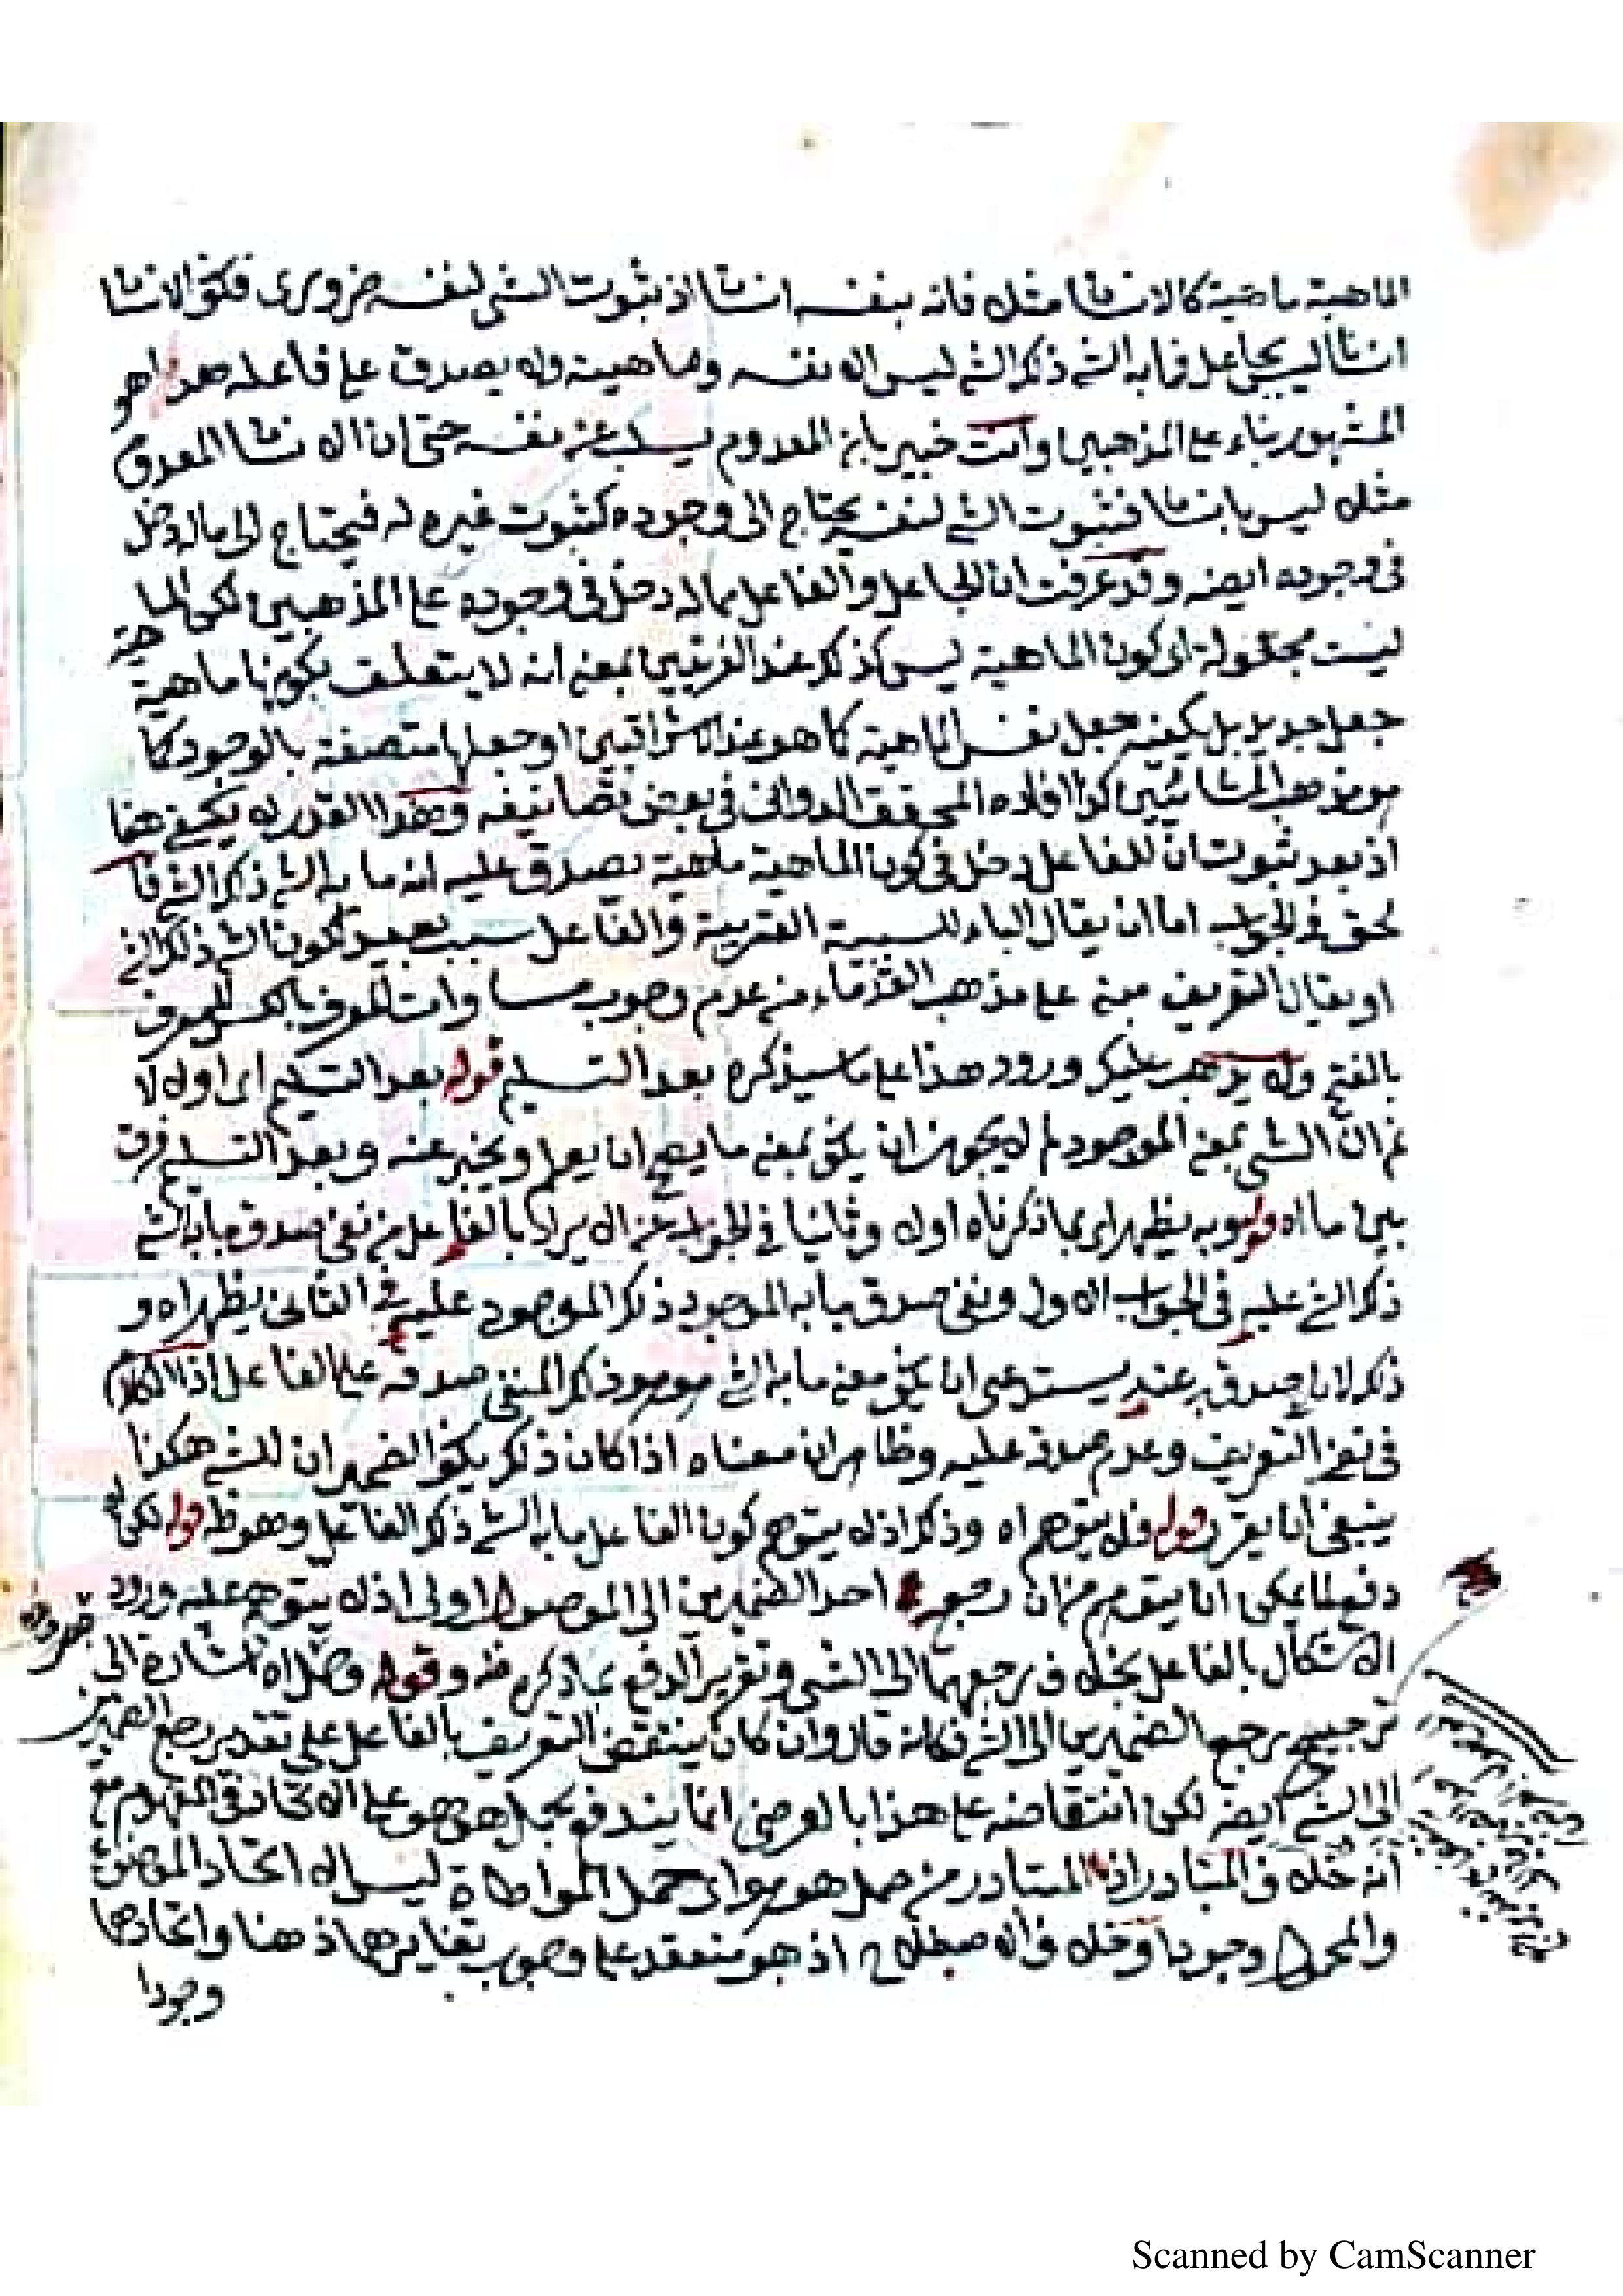 الماهية ماهية كالانسان مثلا فانه بنفسه انسان اذ ثبوت الشئ لنفسه ضرورى فكون الانسان
انسانا ليس بجاعل فما به الشئ ذلك الشئ ليس الا نفسه وماهيته ولا يصدق على فاعله هذا هو
المشهور بناء على المذهبين وانت خبير بان المعدوم يسلب عن نفسه حتى ان الانسان المعدوم
مثلا ليس بانسان فثبوت الشئ لنفسه يحتاج الى وجوده كثبوت غيره له فيحتاج الى ماله دخل
فى وجوده ايضه وقد عرفت ان الجاعل والفاعل مما له دخل فى وجوده على المذهبين لكن الما
هية
ليست مجعولة اى كون الماهية ليس كذلك عند الفريقين بمعنى انه لا يتعلق بكونها ماهية
جعل جديد بل يكفيه جعل نفس الماهية كما هو عند الاشراقيين او جعلها متصفة بالوجود كما
هو مذهب المشائيين كذا افاده المحقق الدوانى فى بعض تصانيفه وهذا القدر لا يكفى هنا
اذ بعد ثبوت ان للفاعل دخل فى كون الماهية ماهية يصدق عليه انه ما به الشئ ذلك الشئ فا
لحق فى الجواب اما ان يقال الباء للسببية القريبة والفاعل سبب بعيد لكون الشئ ذلك الشئ
او يقال التعريف مبنى على مذهب القدماء من عدم وجوب مساوات المعرف بالكسر للمعرف
بالفتح ولا يذهب عليك ورود هذا على ما سيذكره بعد التسليم قوله بعد التسليم اى اولا لا
نم ان الشئ بمعنى الموجود لم لا يجوز ان يكون بمعنى ما يصح ان يعلم ويخبر عنه وبعد التسليم فرق
بين ما اه قوله وبه يظهر اى بما ذكرناه اولا وثانيا فى الجواب عن الايراد بالفاعل من نفى صدق ما به الشئ
ذلك الشئ عليه فى الجواب الاول ونفى صدق ما به الموجود ذلك الموجود عليه فى الثانى يظهر اه و
ذلك لان صدق يستدعى ان يكون معنى ما به الشئ هو هو ذلك المنفى صدقه على الفاعل اذ الكلام
فى نقض التعريف وعدم صدقه عليه وظاهر ان معناه اذا كان ذلك يكون الضميران للشئ هكذا
ينبغى ان يقرر قوله فلا يتوهم اه وذلك اذ لا يتوهم كون الفاعل ما به الشئ ذلك الفاعل وهو ظ قوله لكن
دفع لما يمكن ان يتوهم من ان رجع احد الضميرين الى الموصول اولى اذ لا يتوجه عليه ورود
الاشكال بالفاعل بخلاف رجعهما الى الشئ وتقرير الدفع بما ذكره منه وقوله اه اشارة الى
ترجيح رجع الضميرين الى الشئ فكانه قال وان كان ينتقض التعريف بالفاعل على تقدير رجع الضميرين
الى الشئ ايضه لكن انتقاضه على هذا بالعرضى انما يندفع بحمل هو هو على الاتحاد فى المفهوم مع
انه خلاف المتبادر اذ المتبادر من حمل هو هو اى حمل المواطاة ليس الا اتحاد الموضوع
والمحمول وجودا وخلاف الاصطلاح اذ هو منعقد على وجوب تغايرهما ذهنا واتحادهما
وجودا
Scanned by CamScanner